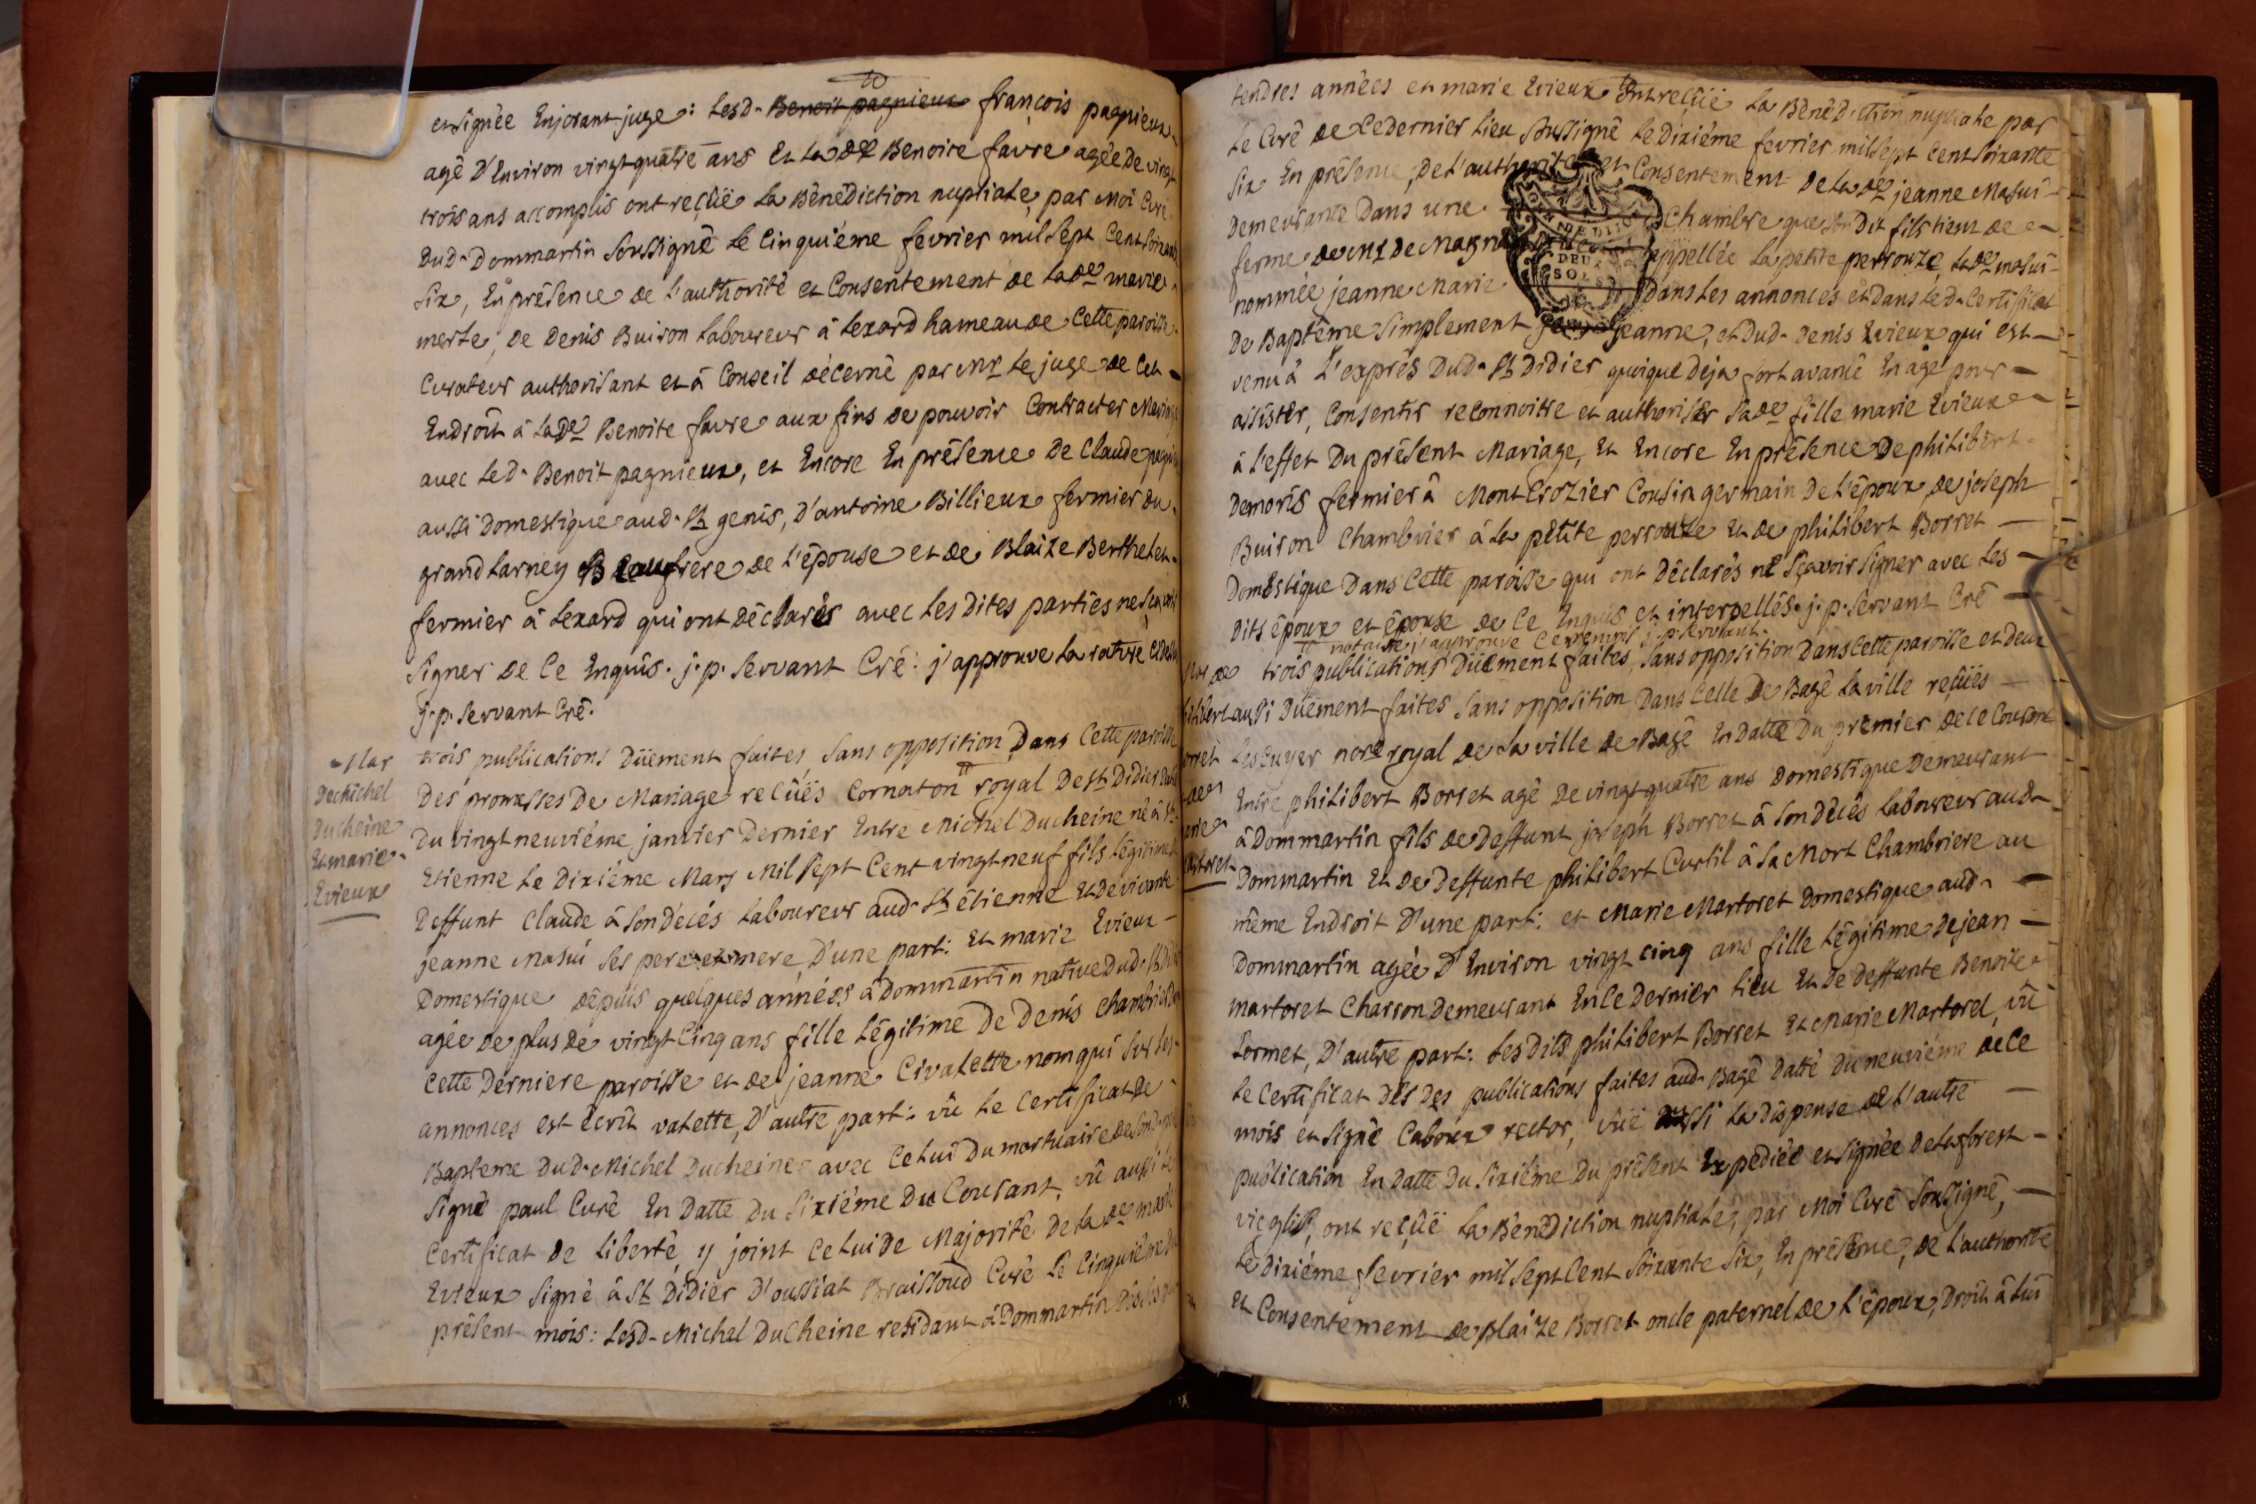 et signée Enjorant juge: Lesd. Benoit pagnieux françois pagnieux
agé d'Environ vingt quatre ans Et la de Benoite favre agée de vingt
trois ans accomplis ont reçüe La Bénédiction nuptiale, par Moi Curé
dud. Dommartin Soussigné le Cinquiéme fevrier mil Sept Cent Soixante
Six, En présence de l'authorité et Consentement de la de marie
merle, de Denis Buiron Laboureur à Lexard hameau de Cette paroisse
Curateur authorisant et à Conseil décerné par Mr le juge de Cet
Endroit à La De Benoite favre aux fins de pouvoir Contracter Mariage
avec Led. Benoit pagnieux, et Encore En présence de Claude
aussi Domestique aud. St genis, d'antoine Billieux fermier du
grand Larney Beaufrere de l'épouse et de Blaize Berthelet
fermier à Lexard qui ont déclarés avec Les dites parties ne Sçavoir
Signer de Ce Enquis. j. p. Servant Cré: j'approuve La rature
j. p. Servant Cré.
Mar
De Michel
Ducheine
Et marie
Evieux
trois publications Düement faites, Sans opposition, Dans Cette paroisse
Des promesses De Mariage reçües Cornaton royal De St Didier
Du vingt neuviéme janvier Dernier Entre Michel Ducheine né à St
Etienne Le Dixiéme Mars Mil Sept Cent vingt neuf fils Légitime
Deffunt Claude à Son décés Laboureur aud. St étienne Et de vivante
jeanne Masuï Ses pere et mere, D'une part: Et marie Evieux
Domestique dépuis quelques années à Dommartin native dud. St
agée de plus de vingt Cinq ans fille Légitime De Denis
Cette Derniere paroisse et de jeanne Civalette nom qui Sur Les
annonces est écrit valette, D'autre part: vû Le Certificat de
Bapteme Dud. Michel Ducheine avec Celui Du mortuaire de Sond.
Signé paul Curé En Datte Du Sixiéme Du Courant, vû aussi Le
Certificat de Liberté y joint Celui de Majorité De la de marie
Evieux Signé à St Didier D'oussiat Braissoud Curé Le Cinquiéme
présent mois: Lesd. Michel Ducheine residant à Dommartin
tendres années et marie Evieux Ont reçüe La Bénédiction nuptiale par
Le Curé de Ce dernier Lieu Soussigné Le dixiéme fevrier mil Sept Cent Soixante
Six En présence, De l'authorité et Consentement De La de jeanne Masuï
Demeurante Dans une Chambre que Son Dit fils tient de
ferme de Mr De appellée La petite perrouze, La de masuï
nommée jeanne Marie Dans Les annonces et Dans Led. Certificat
De Baptême Simplement jeanne, et Dud. Denis Evieux qui est
venu à L'exprés Dud. St Didier quoique Déja fort avancé En âge pour
assister, Consentir reconnoitre et authoriser Sa de fille marie Evieux
à l'effet Du présent Mariage, Et Encore En présence De philibert
Demoris fermier à MontCrozier Cousin germain De l'époux, De joseph
Buiron Chambrier à La pétite perrouze Et de philibert Borret
Domestique Dans Cette paroisse qui ont Déclarés ne Sçavoir Signer avec Les
Dits époux et épouse de Ce Enquis et interpellés. j. p. Servant Cré
notaire j'approuve Ce renvoi j. p. Servant.
trois publications Düement faites, Sans opposition Dans Cette paroisse et Deux
aussi Düement faites Sans opposition Dans Celle De Bagé La ville reçües
Lescuyer nore royal de La ville de Bagé En Datte Du premier de Ce Courant
Entre philibert Borret agé De vingt quatre ans Domestique Demeurant
à Dommartin fils de Deffunt joseph Borret à Son Décés Laboureur aud.
Dommartin Et de Deffunte philibert Curtil à Sa Mort Chambriere au
même Endroit D'une part: et Marie Martoret Domestique aud.
Dommartin agée D'Environ vingt cinq ans fille Légitime De jean
martoret Charron Demeurant En Ce Dernier Lieu Et De Deffunte Benoite
Lormet, D'autre part: Les Dits philibert Borret Et Marie Martoret, vû
Le Certificat Des Des publications faites aud. Bagé Datté Du neuviéme de Ce
mois et Signé Caboux rector, vûe aussi La Dispense de L'autre
publication En Datte Du Sixiéme Du présent Expédiée et Signée Delaforest
vic glis, ont reçüe La Bénédiction nuptiale, par Moi Curé Soussigné,
Le dixiéme fevrier mil Sept Cent Soixante Six, En présence, de L'authorité
Et Consentement de Blaize Borret oncle paternel de L'époux, Droit à Lui